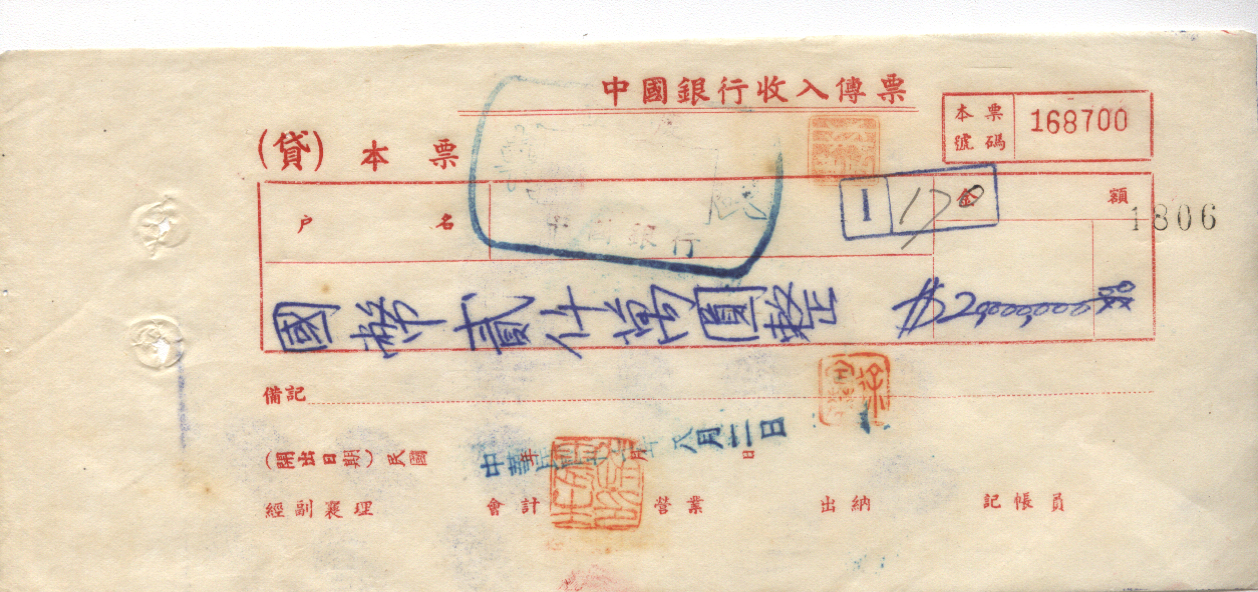 中國銀行收入傳票
本票號碼 168700
(貸) 本票
戶名 中國銀行 I 170 金額
1806
國幣貳仟萬圓整 $20000000
備記
(開出日期) 民國 年 月 日
中華民國 年八月二日
經副襄理 會計 營業 出納 記帳員